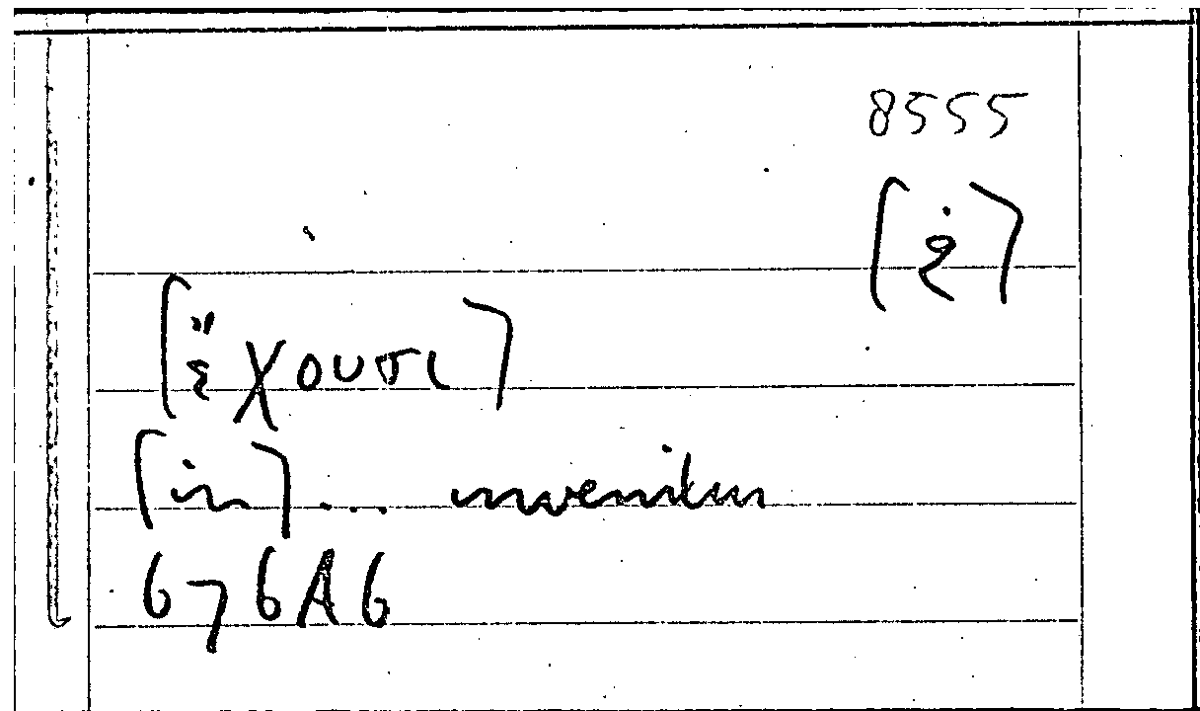 8555
[ἐ]
[ἔχουσι]
[in] ... invenitur
676A6